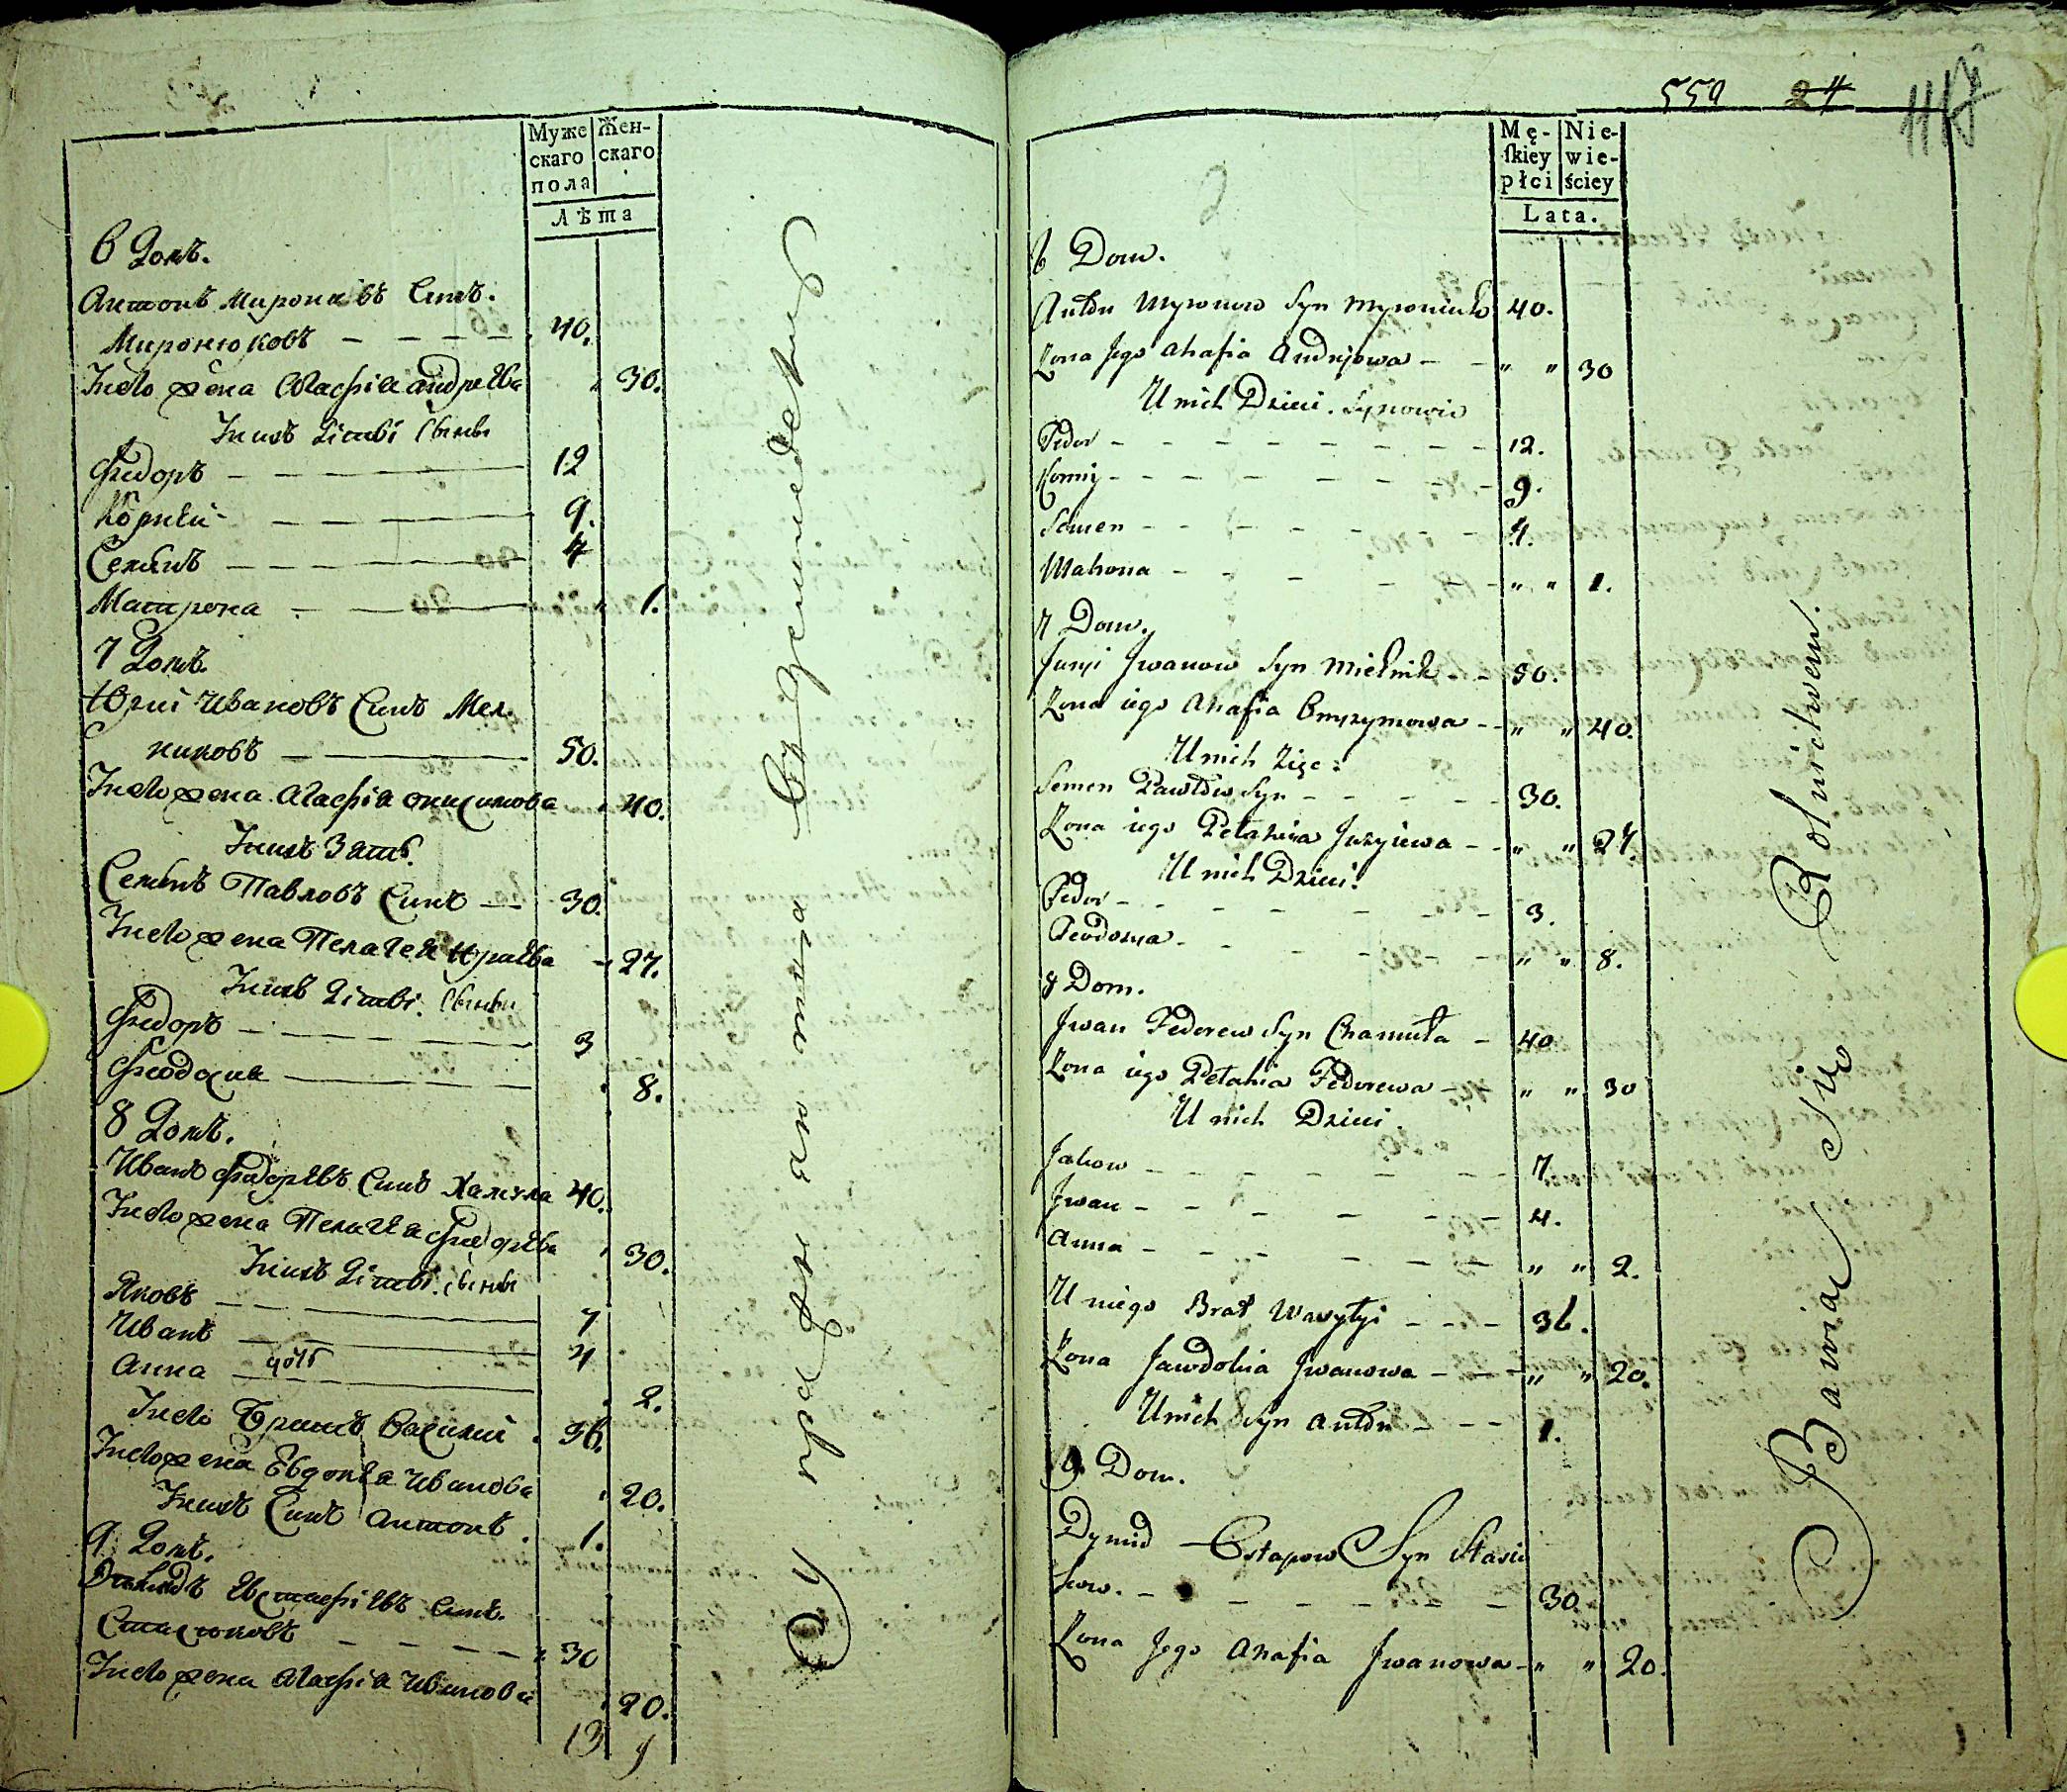 Муже Жен-
скаго скаго
пола
Лѣта
6 Домъ.
Антонъ Мироновъ Синъ.
Миронюковъ — — — — 40.
Унего жена Агафія андреева 30.
Унихъ Дѣти Сыны
Федоръ — — — 12
Корнѣй — — — 9.
Семенъ — — — 4
Матрона — — 1.
7 Домъ.
Юрій Ивановъ Синъ Мел.
никовъ — — 50.
Унего жена Агафія онисимова 40.
Унихъ Зять.
Семенъ Павловъ Синъ — 30.
Унего жена Пелагея Юріева — 27.
Унихъ Дѣти. Сыны
Федоръ — — — 3
Феодосия — — 8.
8 Домъ.
Иванъ Федорѣвъ Синъ Хамула 40.
Унего жена Пелагѣя Федорѣва 30.
Унихъ Дѣти. сыны
Яковъ — — 7
Иванъ — — 4
Анна — дочь — 2.
Унего Братъ Василий 36.
Унего жена Евдокѣя Иванова 20.
Унихъ Синъ Антонъ. 1.
9 Домъ.
Евстафіѣвъ Синъ.
Стасюковъ — — — — 30
Унего жена Агафія Иванова 20.
13 9
Упражняются Вземледелии
559 24
Mę- Nie-
ſkiey wie-
płci ściey
Lata.
6 Dom.
Antón Myronow Syn Myroniuk 40.
Zona Jego Ahafia Andrejowa — " " 30
U nich Dzieci. Synowie
Fedor — — — — 12.
Korniy — — — — 9.
Semen — — — — 4.
Matrona — — — " " 1.
7 Dom.
Juryi Jwanow Syn Mielnik — 50.
Zona iego Ahafia Onyzymowa — " " 40.
U nich Zięc:
Semen Pawłów Syn — — — 30.
Zona iego Pelahia Juryiewa — " " 27.
U nich Dzieci.
Fedor — — — — 3.
Feodosia — — — " " 8.
8 Dom.
Jwan Fedorew Syn Chamuła — 40
Zona iego Pelahia Fedorewa — " " 30
U nich Dzieci.
Jakow — — — — 7.
Jwan — — — — 4.
Anna — — — " " 2.
U niego Brat Wasylyi — — 36.
Zona Jawdokia Jwanowa — " " 20.
U nich Syn Antón — — 1.
9 Dom.
Dymid Ostapow Syn Stasiu
kow. — — — — 30.
Zona Jego Ahafia Jwanowa — " " 20.
Bawią się Rolnictwem.